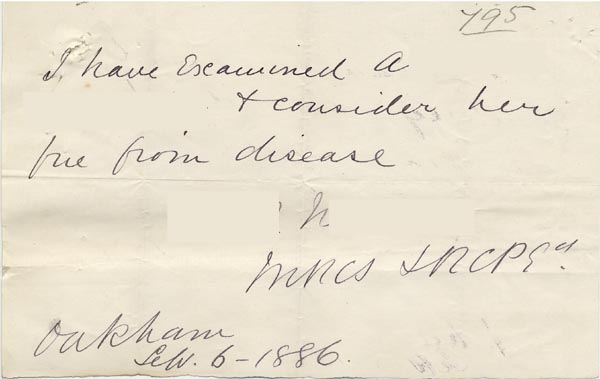 795
I have Examined A
& consider her
free from disease
h
MRCS LRCP Ed.
Oakham
6 - 1886.